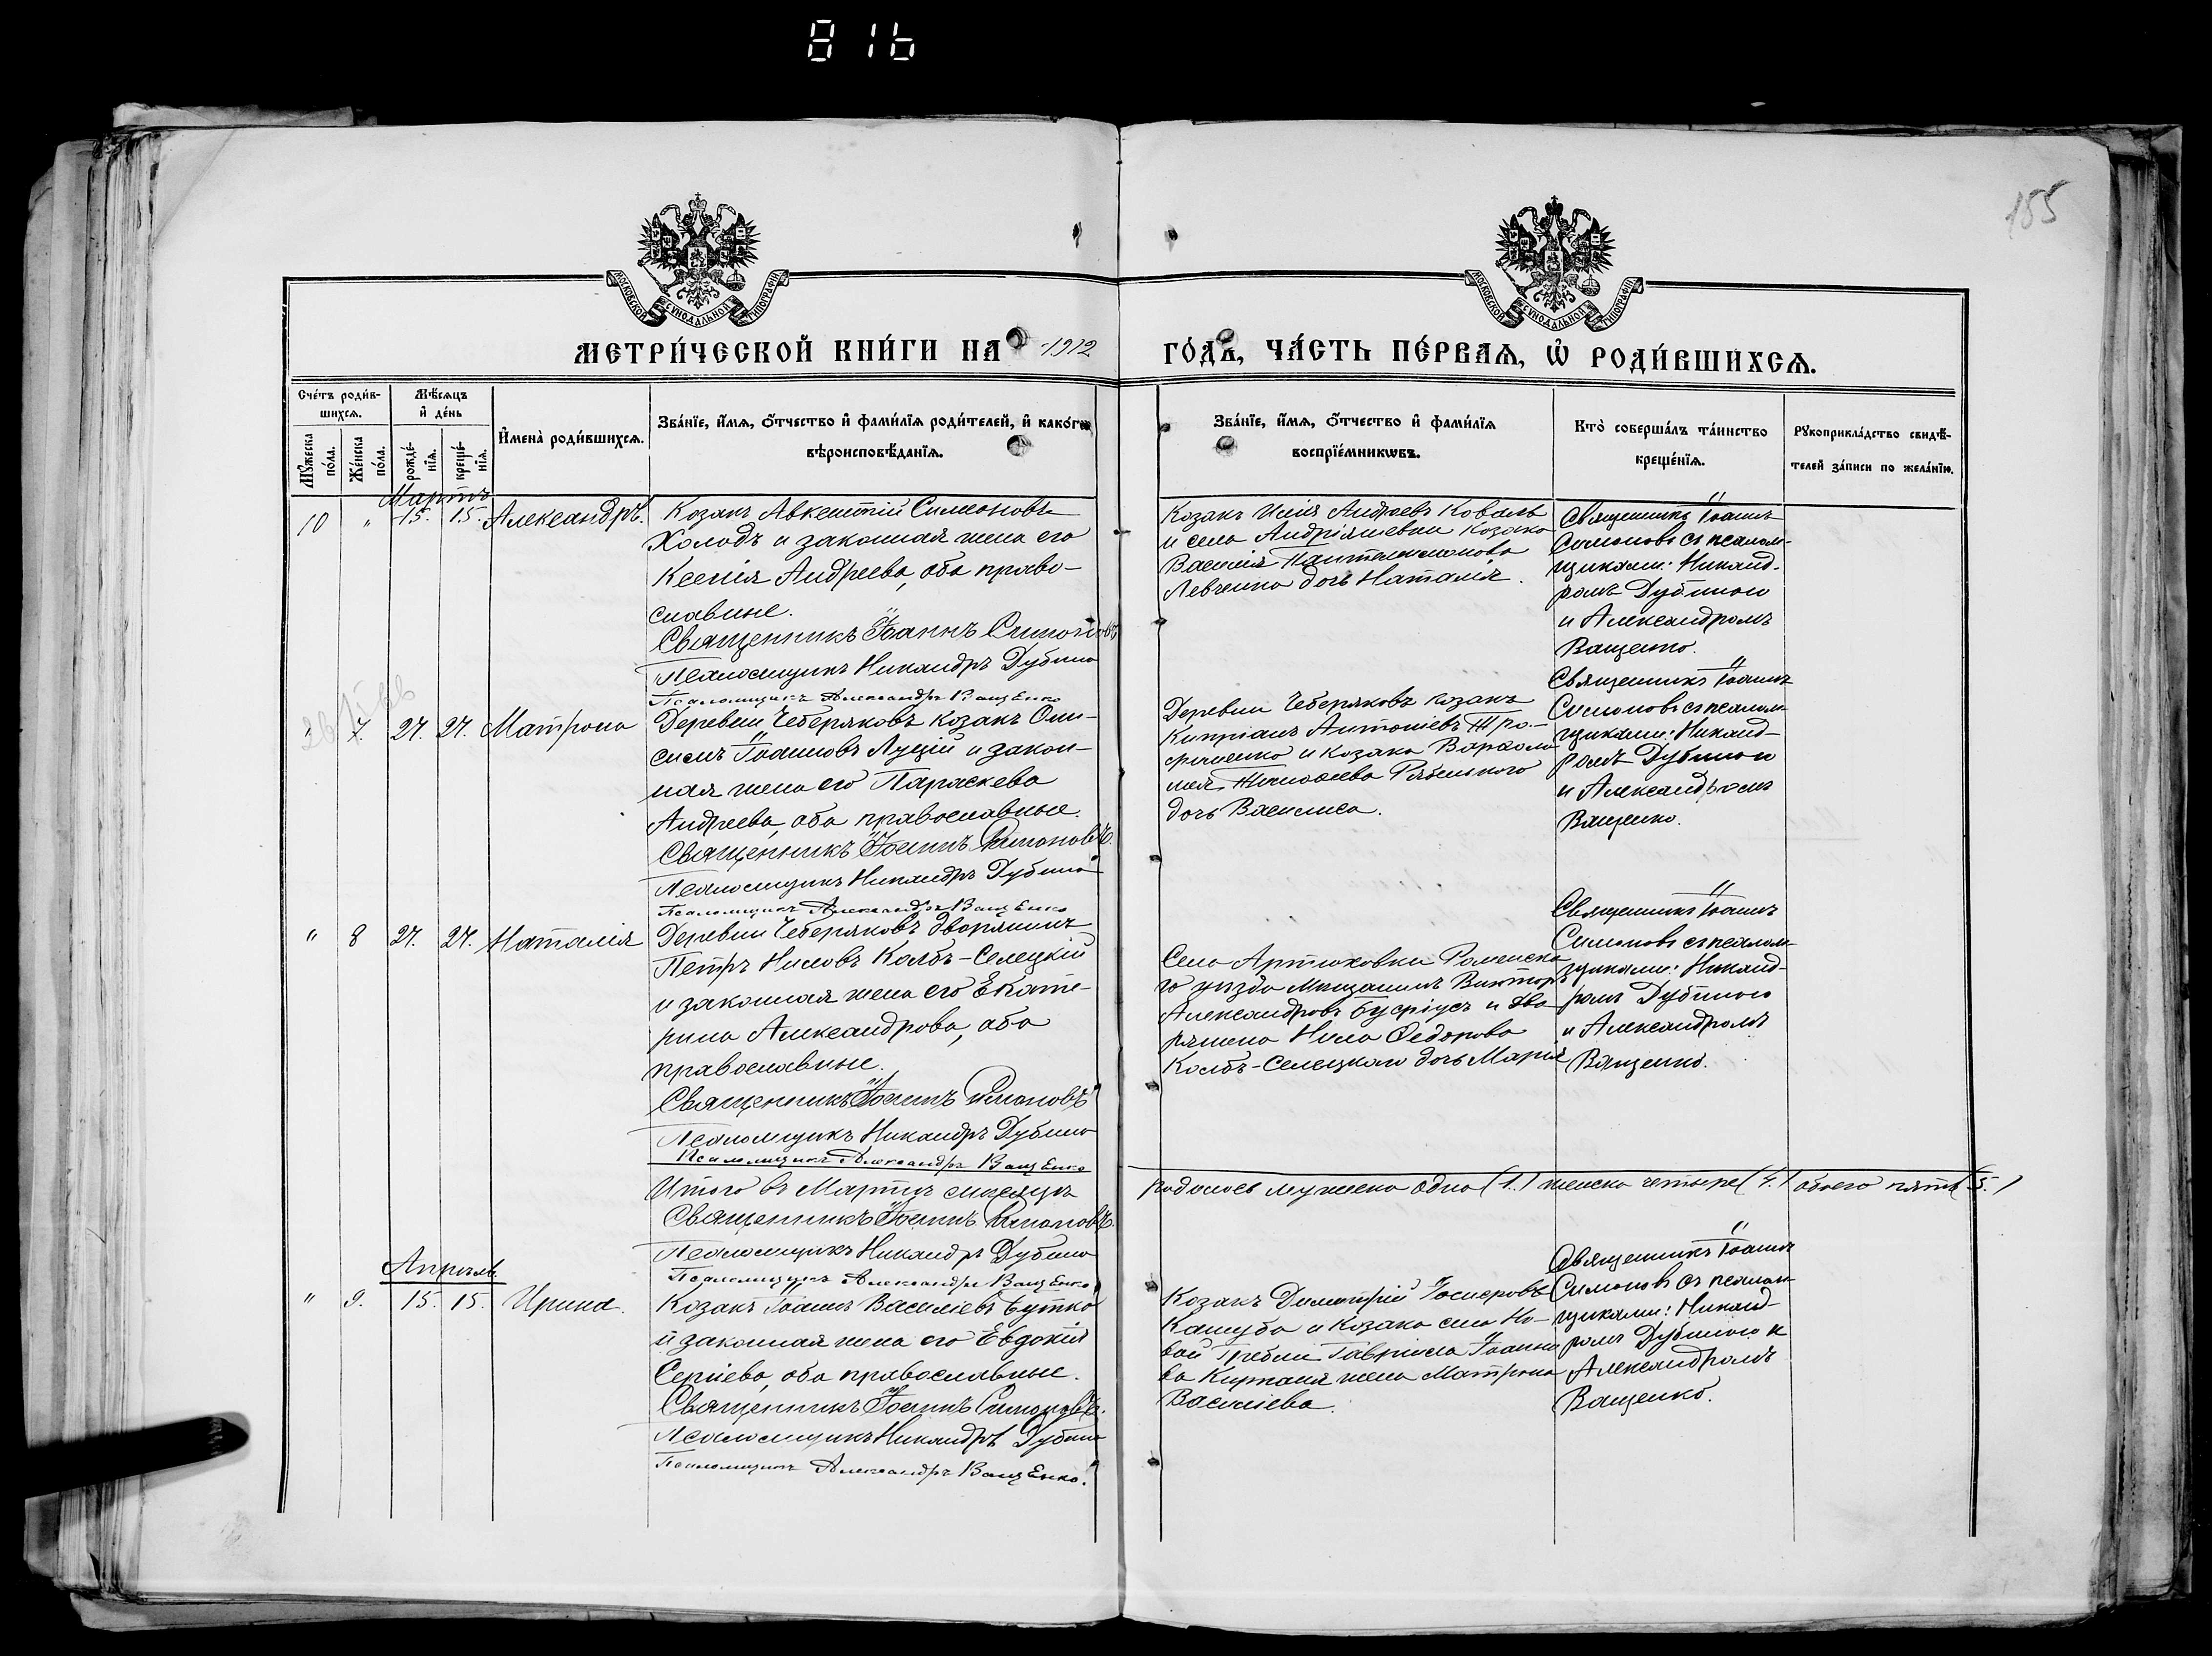 816
155
МОСКОВСКОЙ СѴНОДАЛЬНОЙ ТИПОГРАФІИ
МОСКОВСКОЙ СѴНОДАЛЬНОЙ ТИПОГРАФІИ
МЕТРИ́ЧЕСКОЙ КНИ́ГИ НА 1912 ГО́ДЪ, ЧА́СТЬ ПЕ́РВАѦ, Ѡ҆ РОДИ́ВШИХСѦ.
Сче́тъ роди́в-
шихсѧ.
Мꙋ́жеска по́ла.
Же́нска по́ла.
Мѣ́сѧцъ
и҆ де́нь
рожде́-
нїѧ.
креще́-
нїѧ.
И҆мена̀ роди́вшихсѧ.
Зва́нїе, и҆́мѧ, ѻ҆́тчество и҆ фами́лїѧ роди́телей, и҆ како́гѡ
вѣроисповѣ́данїѧ.
Зва́нїе, и҆́мѧ, ѻ҆́тчество и҆ фами́лїѧ
воспрїе́мникѡвъ.
Кто̀ соверша́лъ та́инство
креще́нїѧ.
Рꙋкоприкла́дство свидѣ́-
телей за́писи по жела́нїю.
Мартъ
10 " 15. 15. Александръ.
Козакъ Авксентій Симоновъ
Холодъ и законная жена его
Ксенія Андреева, оба право-
славные.
Священникъ Іоаннъ Симоновъ
Псаломщикъ Никандръ Дубина
Псаломщикъ Александръ Ващенко
Козакъ Илія Андреевъ Коваль
и села Андріяшевки козака
Василія Пантелеимонова
Левченка дочь Наталія.
Священникъ Іоаннъ
Симоновъ съ псалом-
щиками: Никанд-
ромъ Дубиною
и Александромъ
Ващенко.
" 7. 27. 27. Матрона
Деревни Чеберяковъ козакъ Они-
симъ Іоанновъ Луцій и закон-
ная жена его Параскева
Андреева, оба православные.
Священникъ Іоаннъ Симоновъ.
Псаломщикъ Никандръ Дубина
Псаломщикъ Александръ Ващенко
Деревни Чеберяковъ козакъ
Кипріанъ Антоніевъ Тро-
и козака Варфоло-
мея
дочь Василиса.
Священникъ Іоаннъ
Симоновъ съ псалом-
щиками: Никанд-
ромъ Дубиною
и Александромъ
Ващенко.
" 8 27. 27. Наталія
Деревни Чеберяковъ дворянинъ
Петръ Ниловъ Колбъ-Селецкій
и законная жена его Екате-
рина Александрова, оба
православные.
Священникъ Іоаннъ Симоновъ
Псаломщикъ Никандръ Дубина
Псаломщикъ Александръ Ващенко
Села Артюховки Роменска-
го уѣзда мѣщанинъ Викторъ
Александровъ и дво-
рянина Нила Ѳедорова
Колбъ-Селецкаго дочь Марія
Священникъ Іоаннъ
Симоновъ съ псалом-
щиками: Никанд-
ромъ Дубиною
и Александромъ
Ващенко.
Итого въ Мартѣ мѣсяцѣ родилось мужеска одно (1.) женска четыре (4.) обоего пять (5.)
Священникъ Іоаннъ Симоновъ.
Псаломщикъ Никандръ Дубина
Псаломщикъ Александръ Ващенко
Апрѣль.
" 9. 15. 15. Ирина.
Козакъ Іоаннъ Василіевъ Бутко
и законная жена его Евдокія
Сергіева, оба православные.
Священникъ Іоаннъ Симоновъ.
Псаломщикъ Никандръ Дубина
Псаломщикъ Александръ Ващенко.
Козакъ Димитрій Іосифовъ
Кашуба и козака села Но-
вой Гребли Гавріила Іоанно-
ва жена Матрона
Василіева.
Священникъ Іоаннъ
Симоновъ съ псалом-
щиками: Никанд-
ромъ Дубиною и
Александромъ
Ващенко.